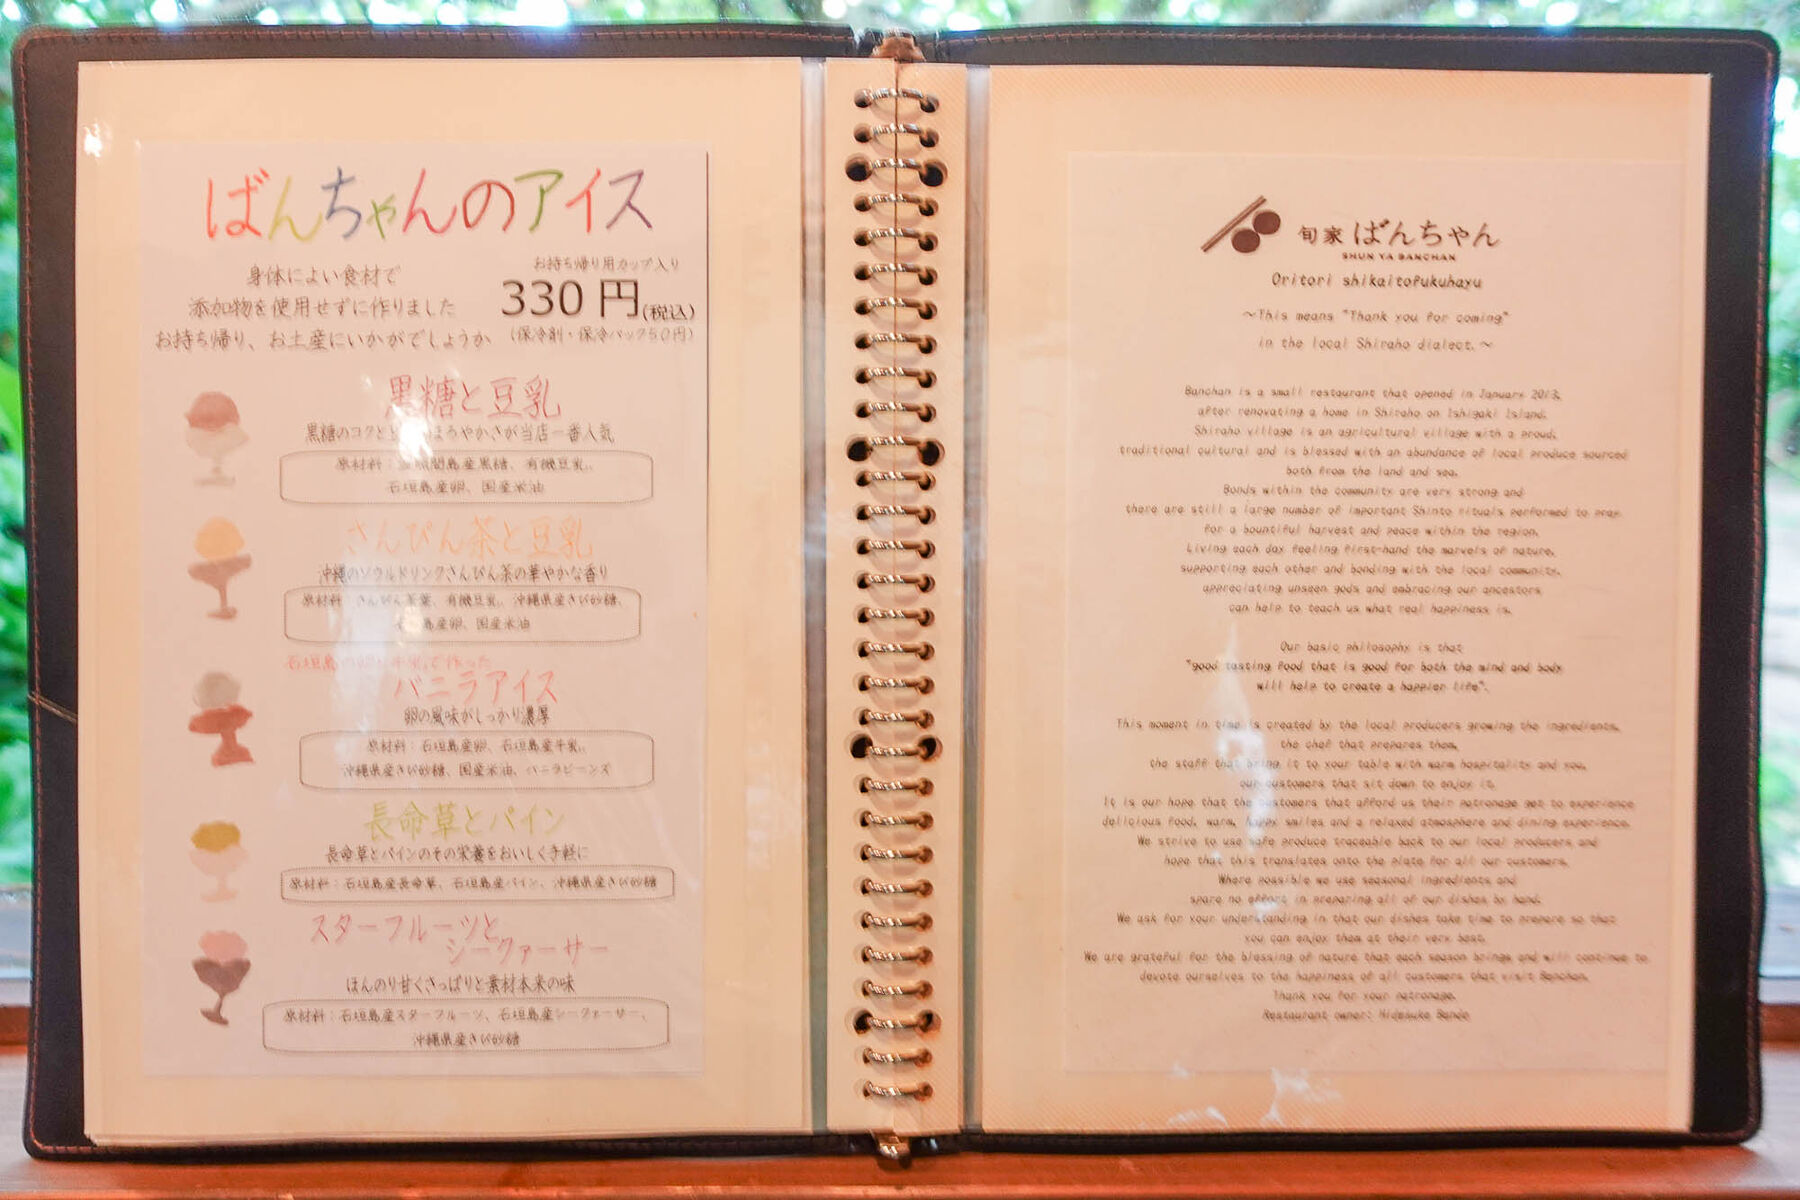 ばんちゃんのアイス
身体によい食材で
添加物を使用せずに作りました
お持ち帰り、お土産にいかがでしょうか
お持ち帰り用カップ入り
330円(税込)
(保冷剤・保冷パック50円)
黒糖と豆乳
黒糖のコクと まろやかさが当店一番人気
原材料： 間島産黒糖、有機豆乳、
石垣島産卵、国産米油
さんぴん茶と豆乳
沖縄のソウルドリンクさんぴん茶の華やかな香り
原材料：さんぴん茶葉、有機豆乳、沖縄県産きび砂糖、
島産卵、国産米油
石垣島の卵と牛乳で作った
バニラアイス
卵の風味がしっかり濃厚
原材料：石垣島産卵、石垣島産牛乳、
沖縄県産きび砂糖、国産米油、バニラビーンズ
長命草とパイン
長命草とパインのその栄養をおいしく手軽に
原材料：石垣島産長命草、石垣島産パイン、沖縄県産きび砂糖
スターフルーツと
シークァーサー
ほんのり甘くさっぱりと素材本来の味
原材料：石垣島産スターフルーツ、石垣島産シークァーサー、
沖縄県産きび砂糖
旬家 ばんちゃん
SHUN YA BANCHAN
Oritori shikaitofukuhayu
～This means "Thank you for coming"
in the local Shiraho dialect.～
Banchan is a small restaurant that opened in January 2013,
after renovating a home in Shiraho on Ishigaki Island.
Shiraho village is an agricultural village with a proud,
traditional cultural and is blessed with an abundance of local produce sourced
both from the land and sea.
Bonds within the community are very strong and
there are still a large number of important Shinto rituals performed to pray
for a bountiful harvest and peace within the region.
Living each day feeling first-hand the marvels of nature,
supporting each other and bonding with the local community,
appreciating unseen gods and embracing our ancestors
can help to teach us what real happiness is.
Our basic philosophy is that
"good tasting food that is good for both the mind and body
will help to create a happier life".
This moment in time is created by the local producers growing the ingredients,
the chef that prepares them,
the staff that bring it to your table with warm hospitality and you,
our customers that sit down to enjoy it.
It is our hope that the customers that afford us their patronage get to experience
delicious food, warm, happy smiles and a relaxed atmosphere and dining experience.
We strive to use safe produce traceable back to our local producers and
hope that this translates onto the plate for all our customers.
Where possible we use seasonal ingredients and
spare no effort in preparing all of our dishes by hand.
We ask for your understanding in that our dishes take time to prepare so that
you can enjoy them at their very best.
We are grateful for the blessing of nature that each season brings and will continue to
devote ourselves to the happiness of all customers that visit Banchan.
Thank you for your patronage.
Restaurant owner: Hidesuke Bando